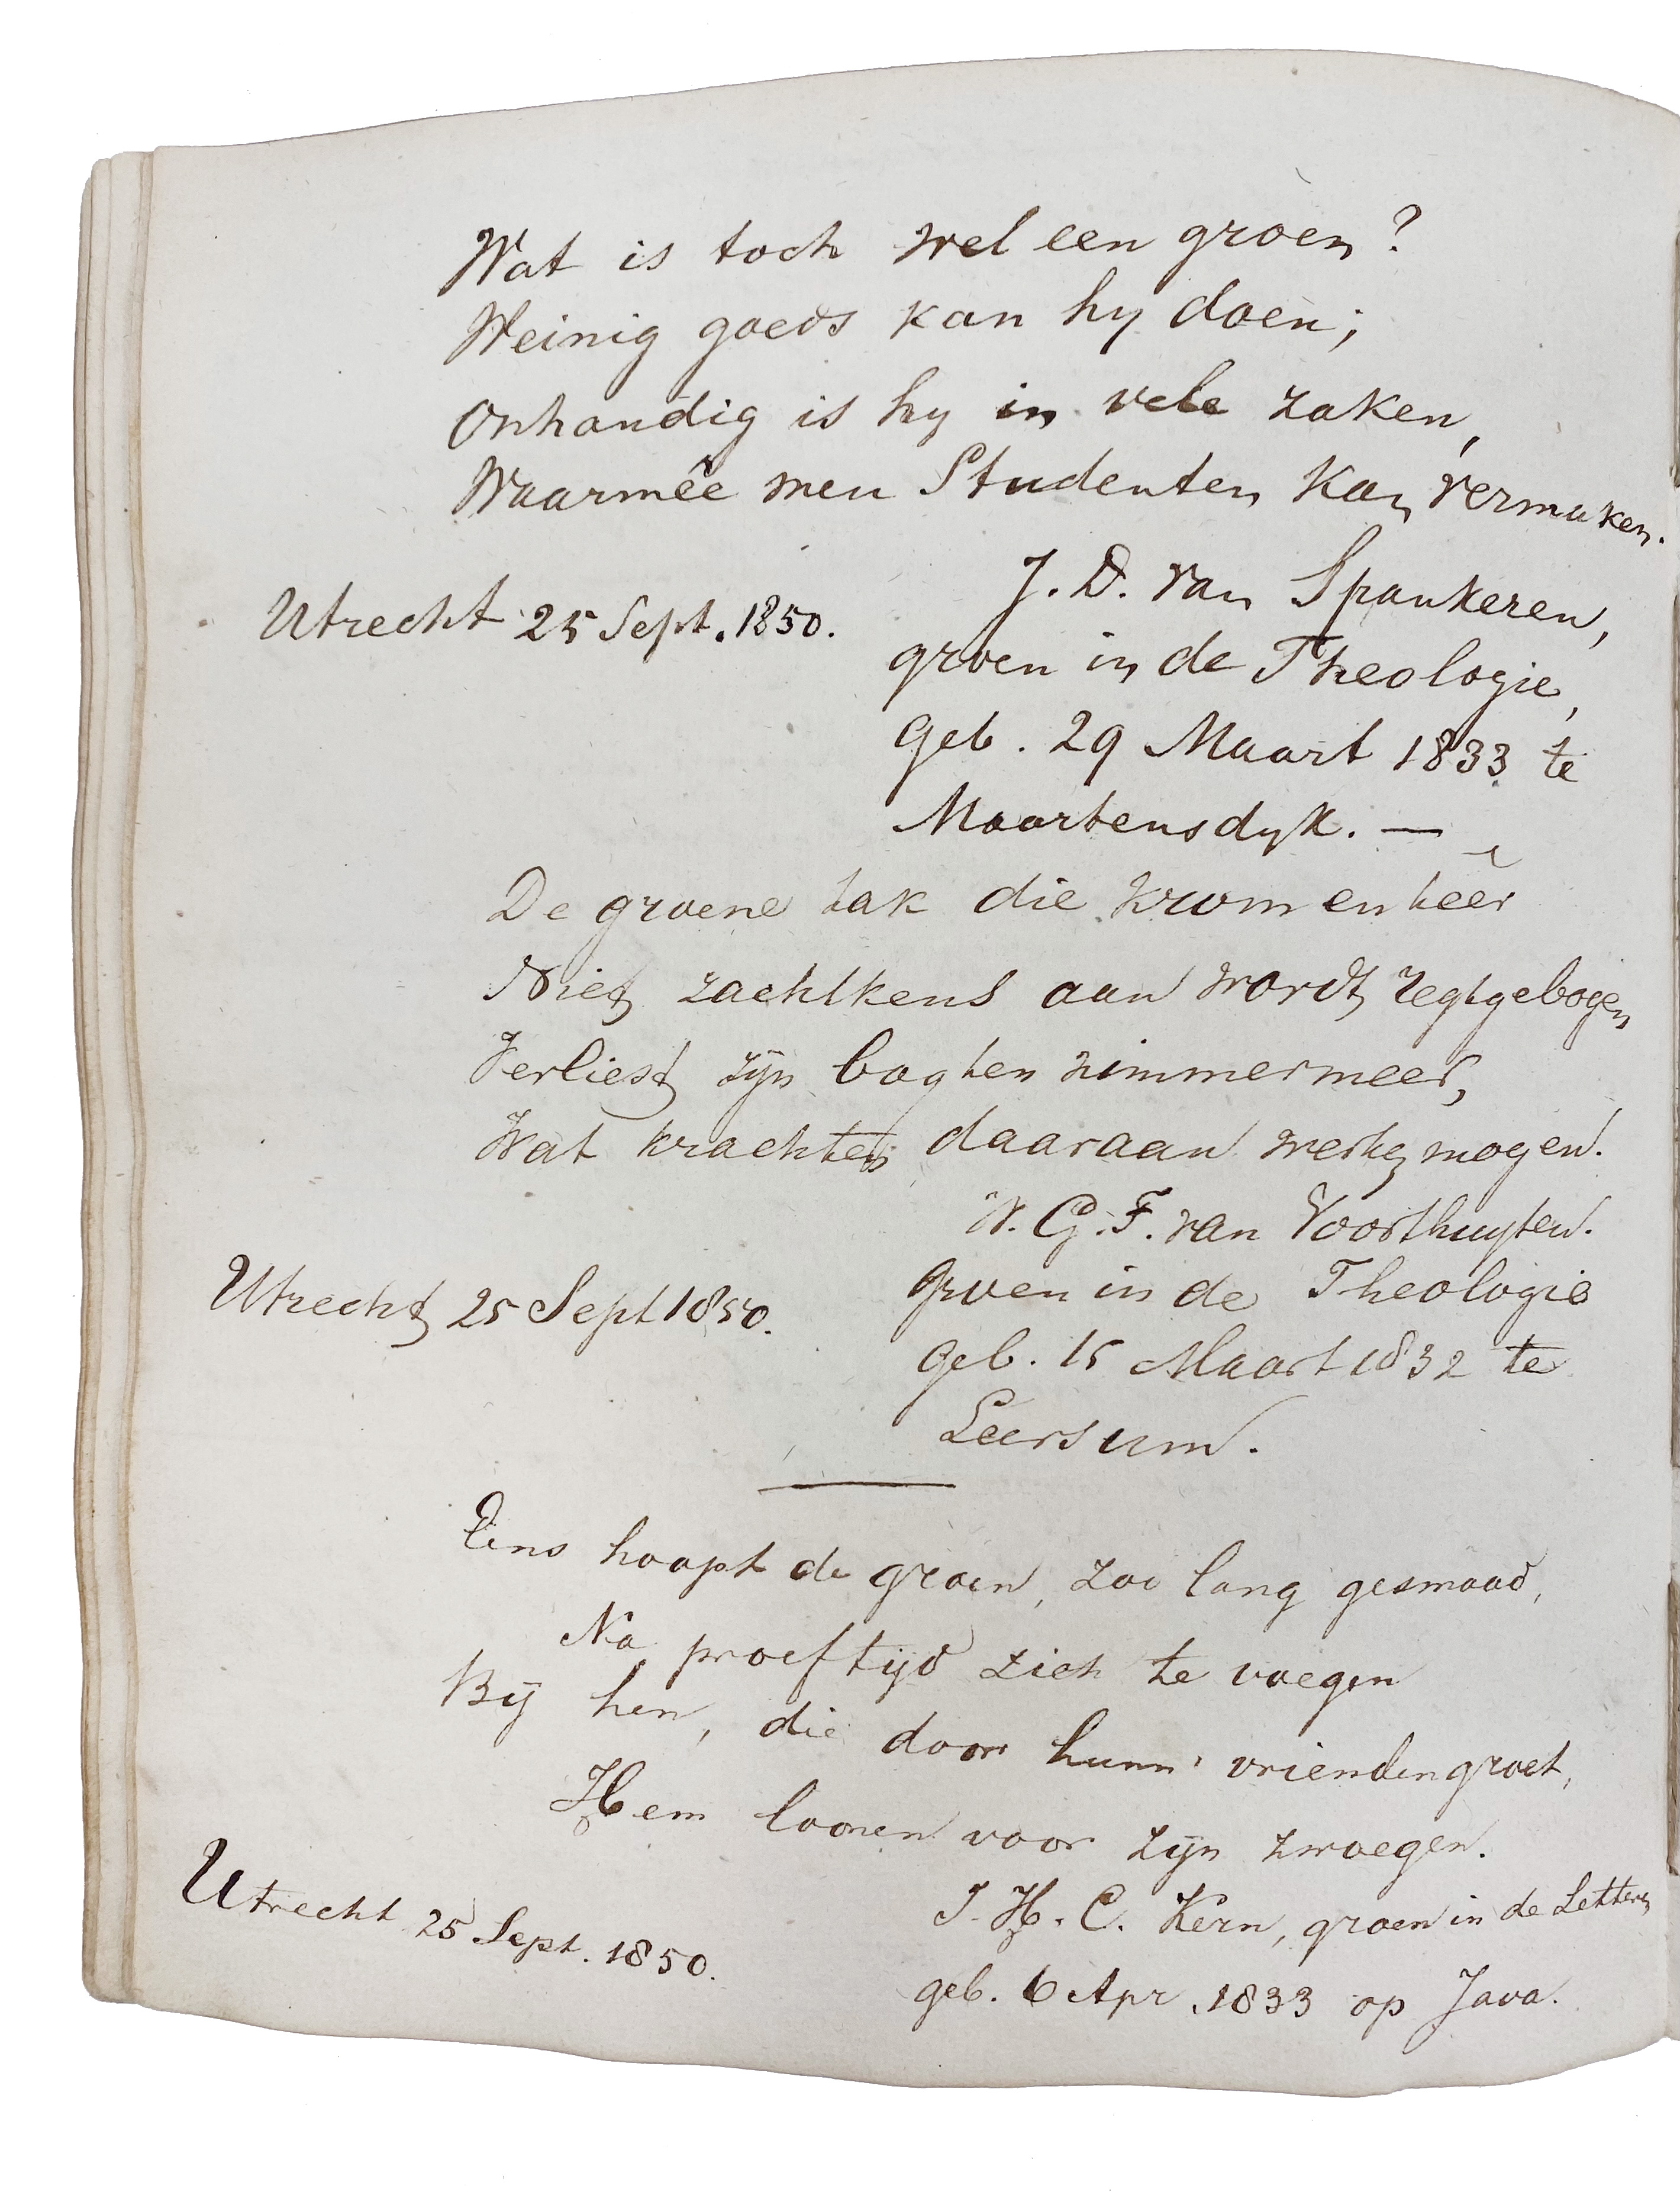 Wat is toch wel een groen?
Weinig goeds kan hy doen;
Onhandig is hy in vele zaken,
Waarmeê men Studenten kan vermaken.
J. D. van Spankeren,
Utrecht 25 Sept. 1850.
groen in de Theologie,
Geb. 29 Maart 1833 te
Maartensdyk. —
De groene tak die krom en teêr
Niet zachtkens aan wordt regtgebogen
Verliest zijn bogten nimmermeer,
Wat krachten daaraan werken mogen.
W. G. F. van Voorthuysen.
groen in de Theologie
Utrecht 25 Sept 1850.
geb. 15 Maart 1832 te
Leersum.
Eens hoopt de groen, zoo lang gesmaad,
Na proeftijd zich te voegen
Bij hen, die door hunn' vriendengroet,
Hem loonen voor zijn zwoegen.
J. H. C. Kern, groen in de Letteren
Utrecht 25 Sept. 1850.
geb. 6 Apr. 1833 op Java.